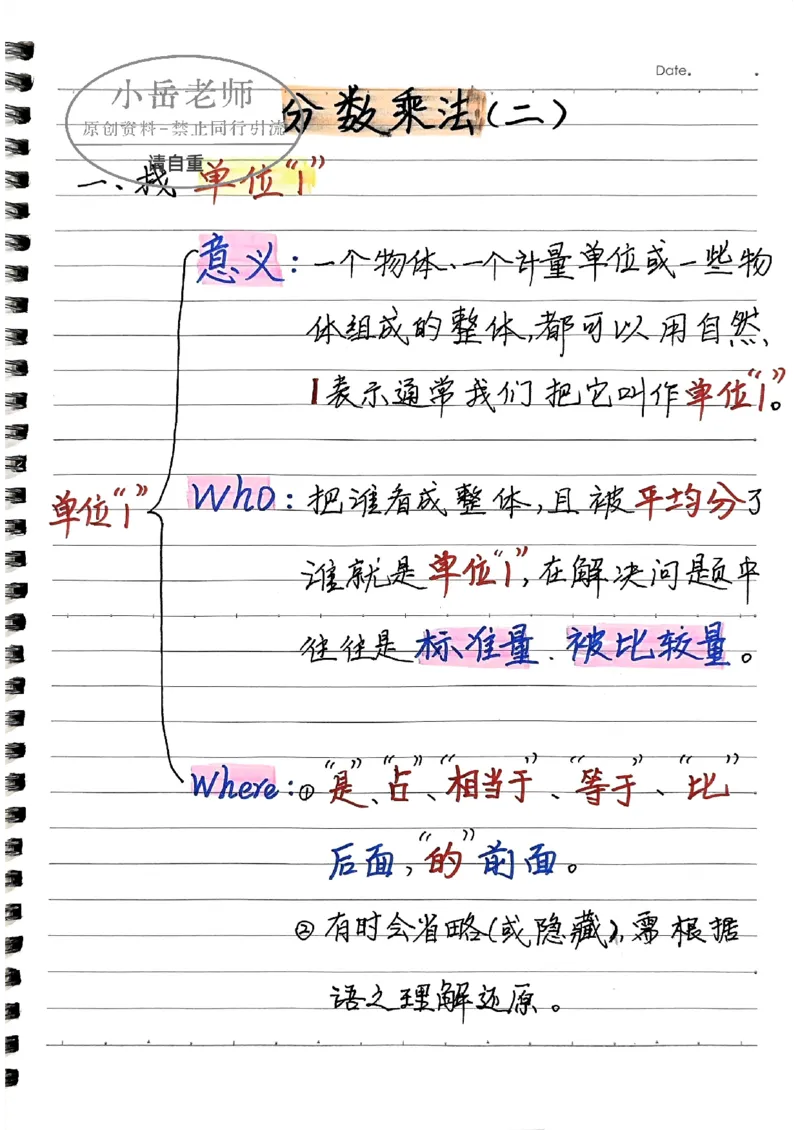 Date.
小岳老师
原创资料-禁止同行引流
请自重
分数乘法(二)
一、找单位“1”
意义：一个物体、一个计量单位或一些物
体组成的整体,都可以用自然
1表示通常我们把它叫作单位“1”。
单位“1”
Who：把谁看成整体,且被平均分了
谁就是单位“1”,在解决问题中
往往是标准量、被比较量。
Where：①“是”、“占”、“相当于”、“等于”、“比”
后面,“的”前面。
②有时会省略(或隐藏),需根据
语之理解还原。